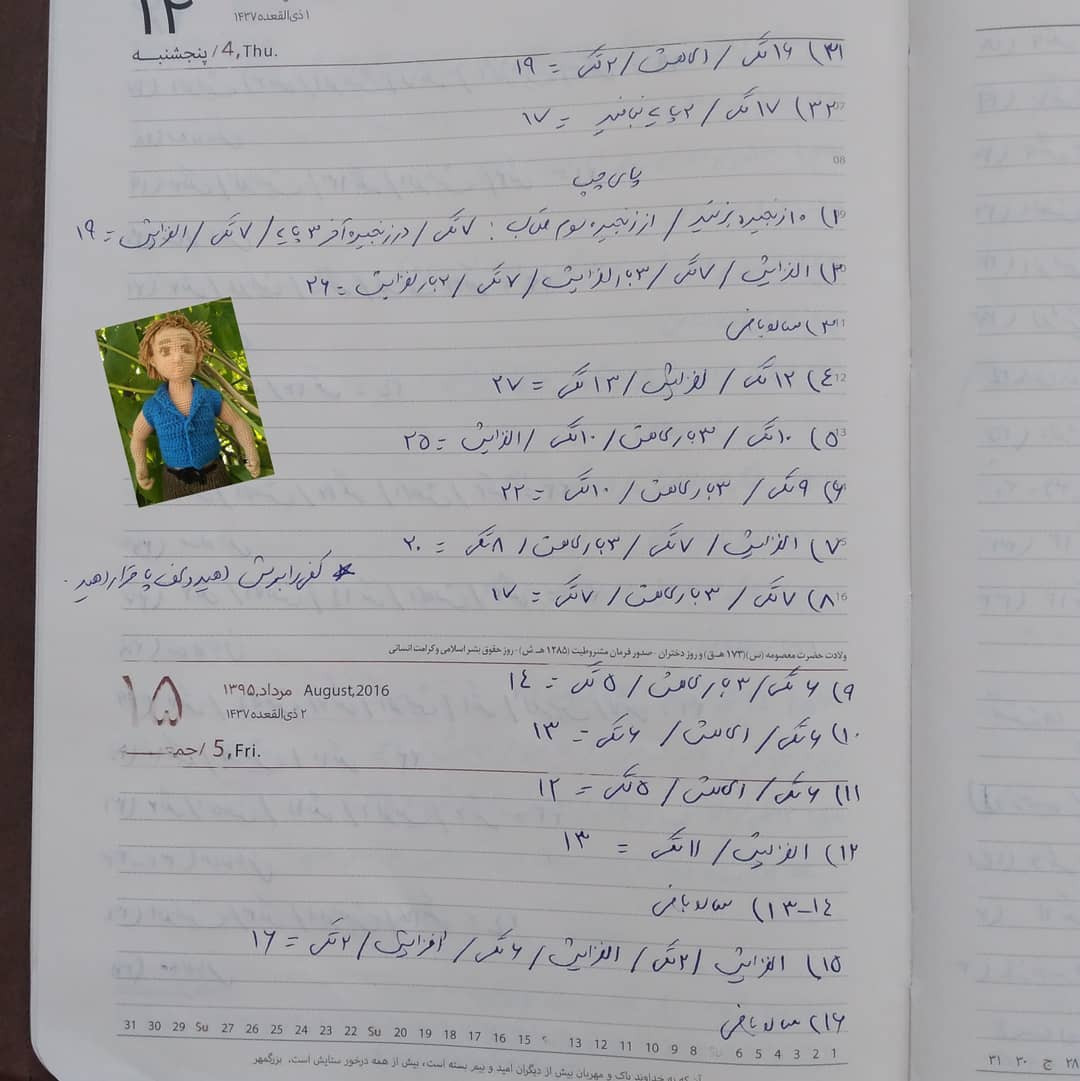 ۱ ذی‌القعده ۱۴۳۷
پنجشنبه / 4, Thu.
۳۱) ۱۶ تک / ۱ کاهش / ۲ تک = ۱۹
۳۲) ۱۷ تک / ۲ پایه نبافید = ۱۷
07
08
پای چپ
۱) ۱۰ زنجیره بزنید / از زنجیره سوم قلاب : ۷ تک / در زنجیره آخر ۳ پایه / ۷ تک / افزایش = ۱۹
۲) افزایش / ۷ تک / ۳ بار افزایش / ۷ تک / ۲ بار افزایش = ۲۶
۳) ساده بافی
11
۴) ۱۲ تک / افزایش / ۱۳ تک = ۲۷
12
۵) ۱۰ تک / ۳ بار کاهش / ۱۰ تک / افزایش = ۲۵
13
۶) ۹ تک / ۳ بار کاهش / ۱۰ تک = ۲۲
۷) افزایش / ۷ تک / ۳ بار کاهش / ۸ تک = ۲۰
* کفی را برش دهید و کف پا قرار دهید.
۸) ۷ تک / ۳ بار کاهش / ۷ تک = ۱۷
16
ولادت حضرت معصومه (س) (۱۷۳ هـ ق) و روز دختران - صدور فرمان مشروطیت (۱۲۸۵ هـ ش) - روز حقوق بشر اسلامی و کرامت انسانی
۱۵ مرداد, ۱۳۹۵ August, 2016
۲ ذی‌القعده ۱۴۳۷
جمعه / 5, Fri.
۹) ۶ تک / ۳ بار کاهش / ۵ تک = ۱۴
۱۰) ۶ تک / ۱ کاهش / ۶ تک = ۱۳
۱۱) ۶ تک / ۱ کاهش / ۵ تک = ۱۲
۱۲) افزایش / ۱۱ تک = ۱۳
۱۳-۱۴) ساده بافی
۱۵) افزایش / ۲ تک / افزایش / ۶ تک / افزایش / ۲ تک = ۱۶
۱۶) ساده بافی
31 30 29 Su 27 26 25 24 23 22 Su 20 19 18 17 16 15 13 12 11 10 9 8 Su 6 5 4 3 2 1
به خداوند پاک و مهربان بیش از دیگران امید و بیم بسته است، بیش از همه درخور ستایش است. بزرگمهر
۳۱ ۳۰ ج ۲۸